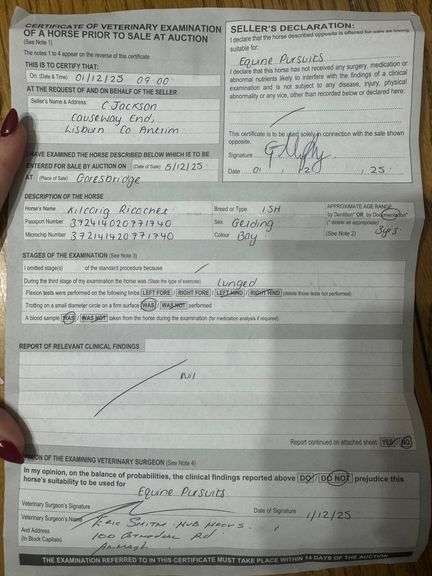 CERTIFICATE OF VETERINARY EXAMINATION
OF A HORSE PRIOR TO SALE AT AUCTION
(See Note 1)
The notes 1 to 4 appear on the reverse of this certificate
THIS IS TO CERTIFY THAT:
On (Date & Time) 01/12/25 09.00
AT THE REQUEST OF AND ON BEHALF OF THE SELLER
Seller's Name & Address: C Jackson
Causeway End,
Lisburn Co Antrim
I HAVE EXAMINED THE HORSE DESCRIBED BELOW WHICH IS TO BE
ENTERED FOR SALE BY AUCTION ON (Date of Sale) 5/12/25
AT (Place of Sale) Goresbridge
SELLER'S DECLARATION:
I declare that the horse described opposite is offered for sale as being
suitable for:
Equine Pursuits
I declare that this horse has not received any surgery, medication or
abnormal nutrients likely to interfere with the findings of a clinical
examination and is not subject to any disease, injury, physical
abnormality or any vice, other than recorded below or declared here:
This certificate is to be used solely in connection with the sale shown
opposite.
Signature
Date 01 12 25
DESCRIPTION OF THE HORSE
Horse's Name Kilcorig Ricochet Breed or Type ISH
Passport Number 372414020771740 Sex Gelding
Microchip Number 372141420771740 Colour Bay
APPROXIMATE AGE RANGE
by Dentition* OR by Documentation*
(* delete as appropriate)
(See Note 2) 3yrs
STAGES OF THE EXAMINATION (See Note 3)
I omitted stage(s) of the standard procedure because
During the third stage of my examination the horse was (State the type of exercise) Lunged
Flexion tests were performed on the following limbs LEFT FORE / RIGHT FORE / LEFT HIND / RIGHT HIND (delete those tests not performed)
Trotting on a small diameter circle on a firm surface WAS / WAS NOT performed
A blood sample WAS / WAS NOT taken from the horse during the examination (for medication analysis if required)
REPORT OF RELEVANT CLINICAL FINDINGS
Nil
Report continued on attached sheet: YES / NO
OPINION OF THE EXAMINING VETERINARY SURGEON (See Note 4)
In my opinion, on the balance of probabilities, the clinical findings reported above DO / DO NOT prejudice this
horse's suitability to be used for
Equine Pursuits
Veterinary Surgeon's Signature Date of Signature 1/12/25
Veterinary Surgeon's Name ERIC SMITH MVB MRCVS.
And Address
(In Block Capitals) 100 Rd
Armagh
THE EXAMINATION REFERRED TO IN THIS CERTIFICATE MUST TAKE PLACE WITHIN 14 DAYS OF THE AUCTION